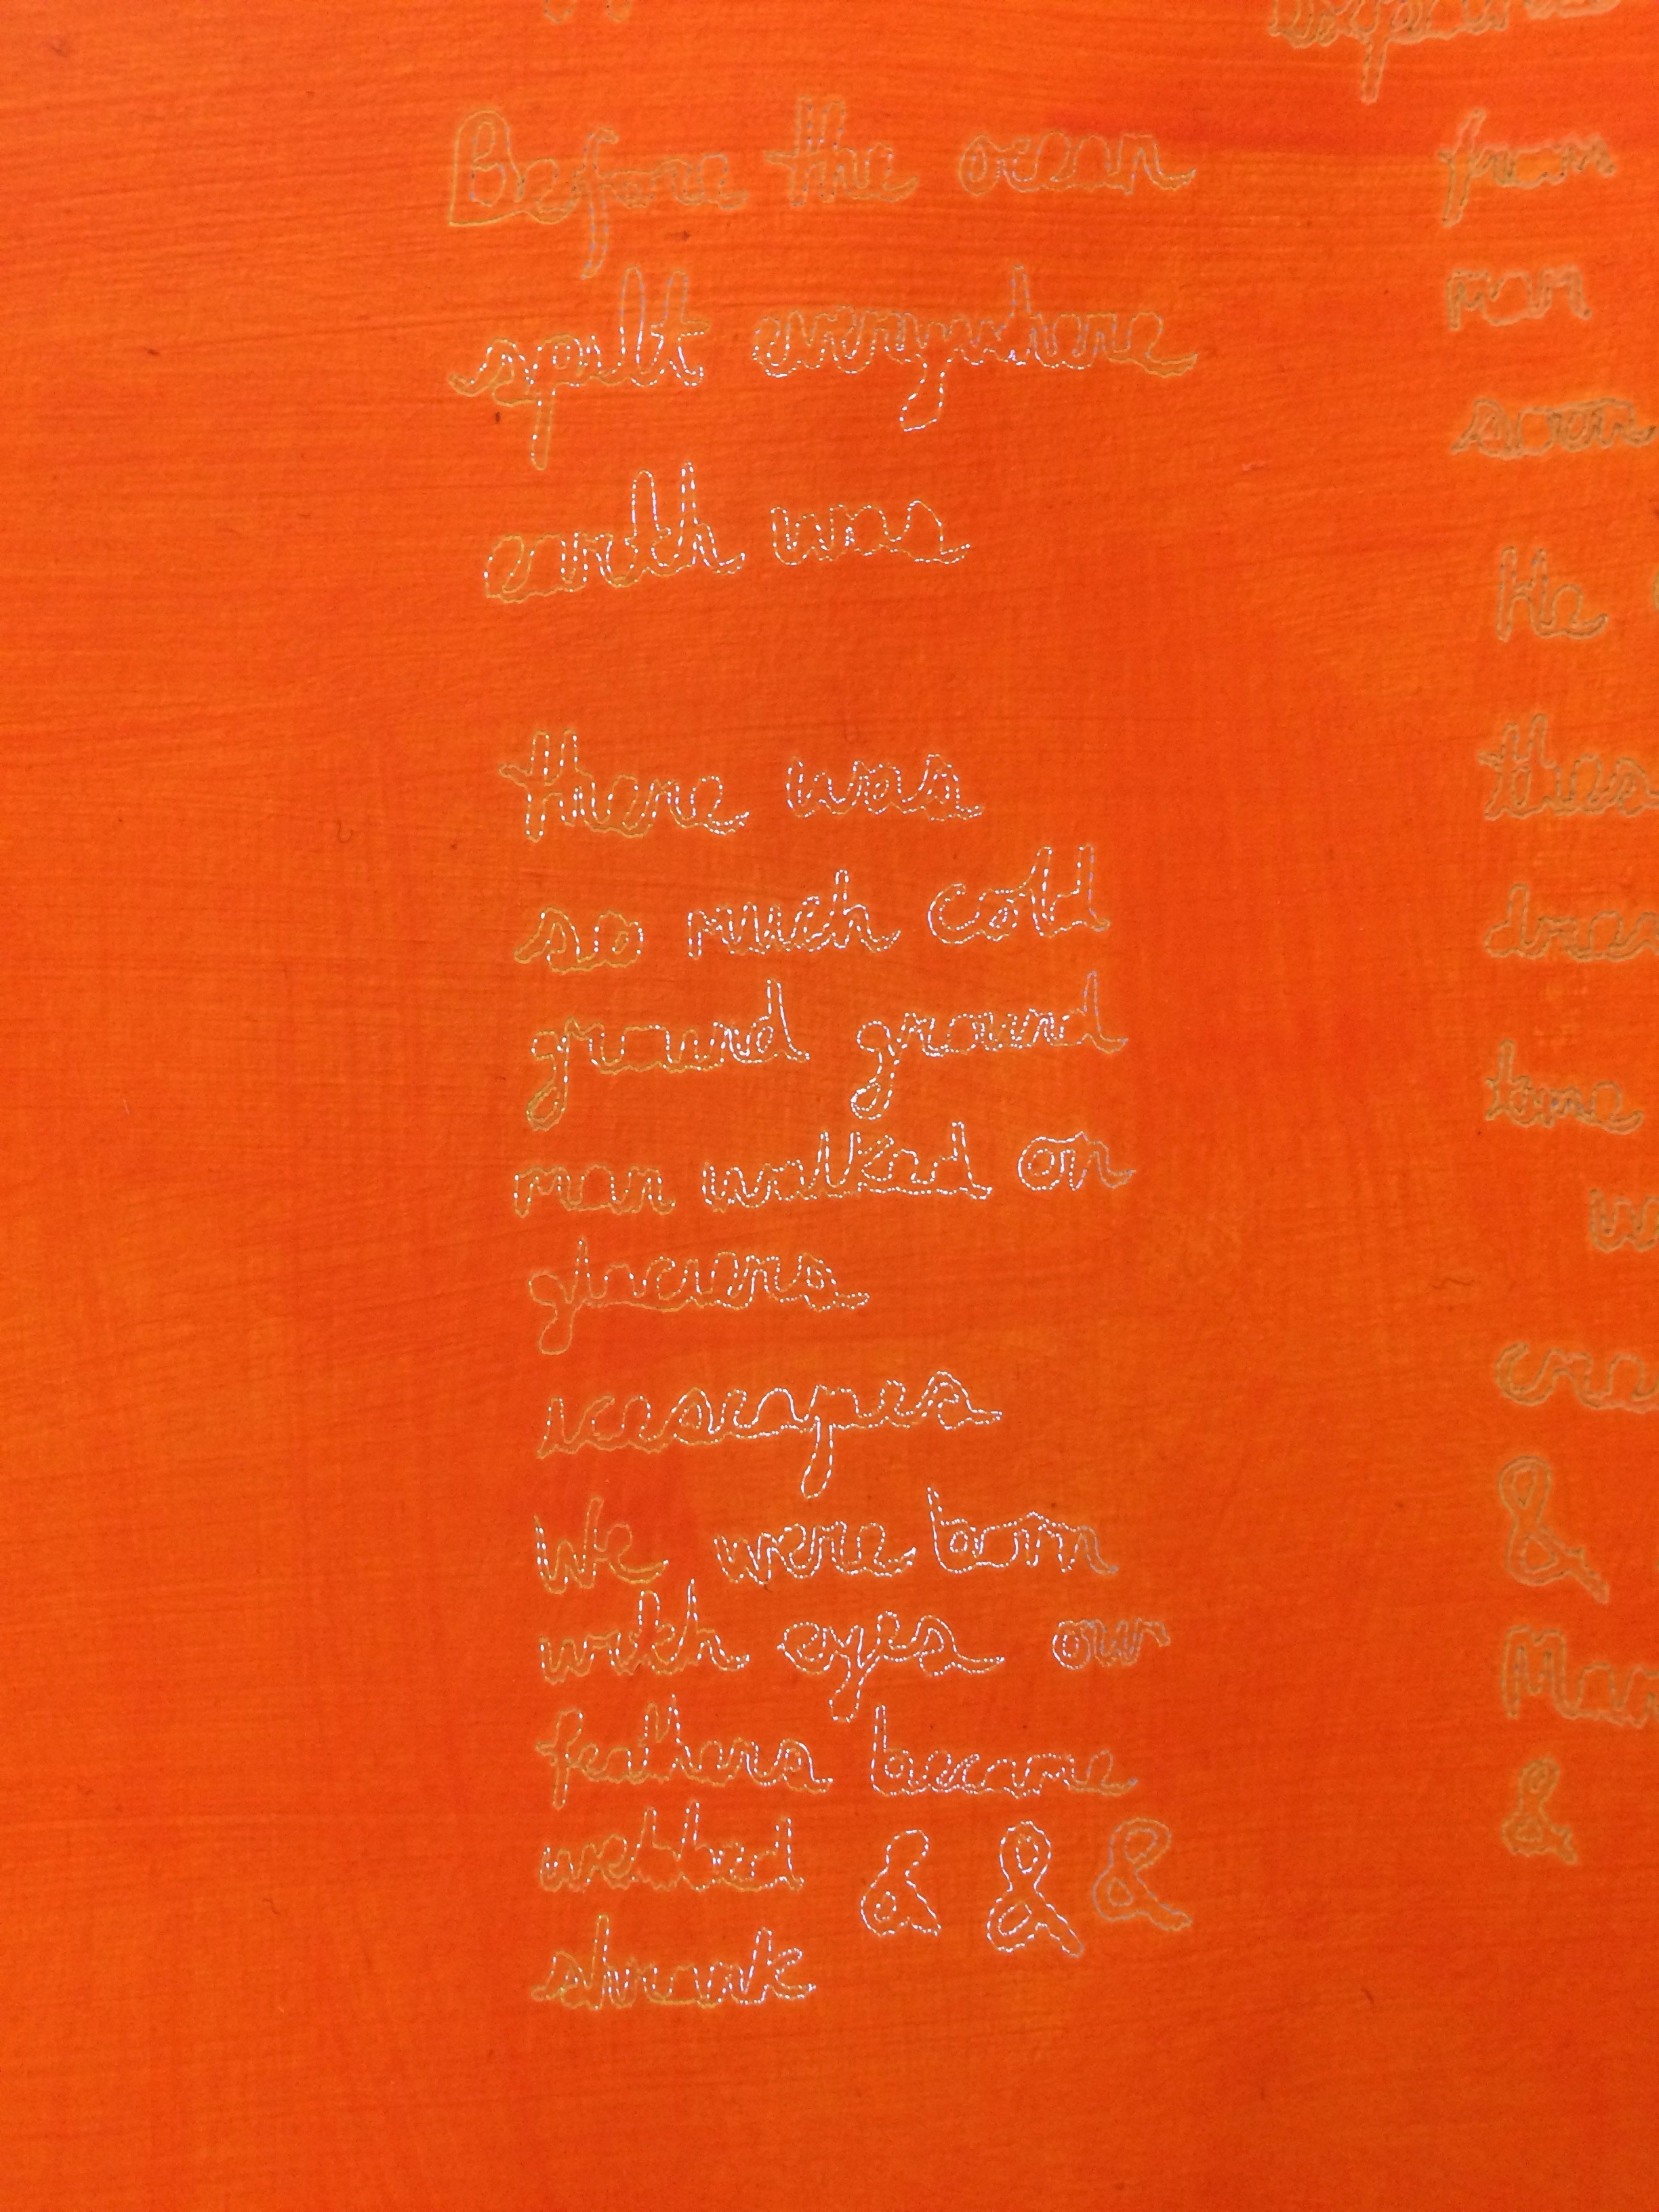 Before the ocean
spilt everywhere
earth was
there was
so much cold
ground ground
man walked on
glaciers
icescapes
We were born
with eyes our
feathers became
webbed & & &
shrunk
from
man
He
&
&